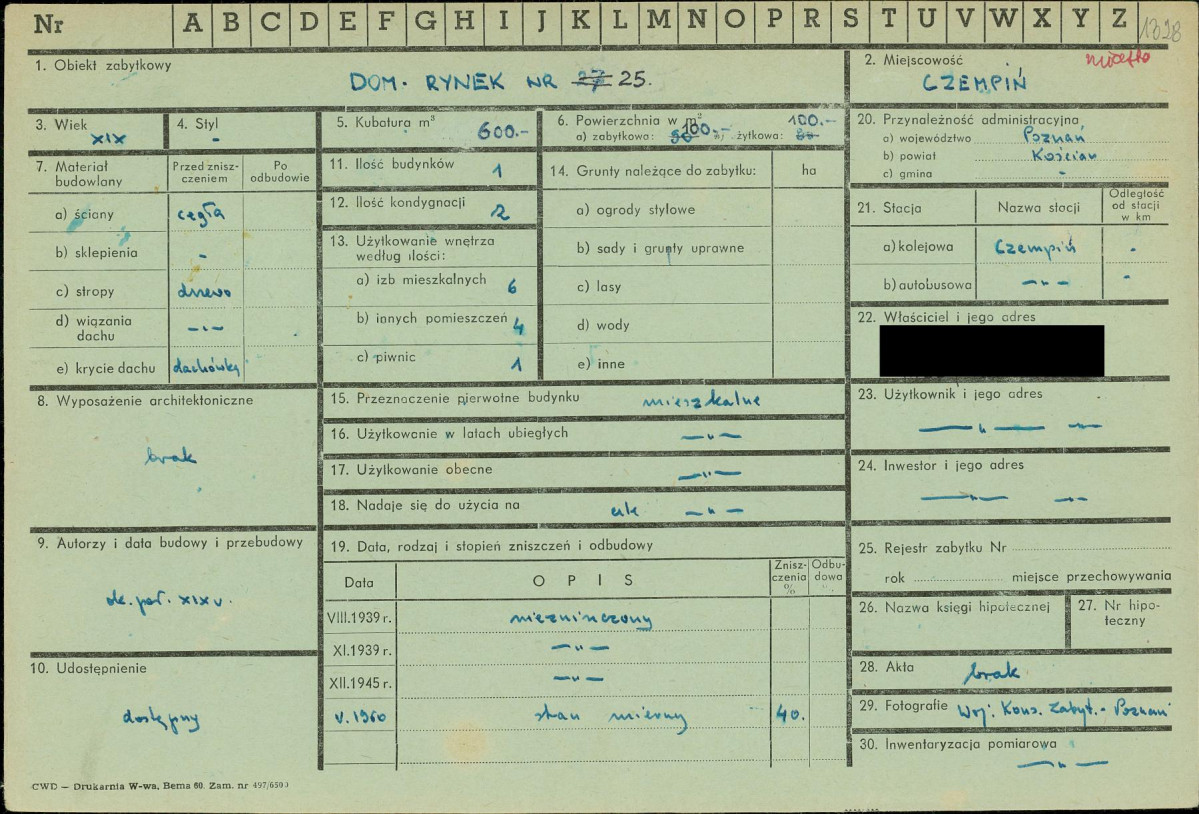 Nr A B C D E F G H I J K L M N O P R S T U V W X Y Z 1328
1. Obiekt zabytkowy
DOM. RYNEK NR 27 25.
2. Miejscowość
CZEMPIŃ
3. Wiek
XIX
4. Styl
-
5. Kubatura m³
600.-
6. Powierzchnia w m²
a) zabytkowa: 100.- b) użytkowa: 100.-
7. Materiał budowlany
Przed znisz-
czeniem
Po
odbudowie
a) ściany cegła
b) sklepienia -
c) stropy drewo
d) wiązania
dachu -"-
e) krycie dachu dachówka
8. Wyposażenie architektoniczne
brak
9. Autorzy i data budowy i przebudowy
ok. poł. XIX w.
10. Udostępnienie
dostępny
11. Ilość budynków 1
12. Ilość kondygnacji 2
13. Użytkowanie wnętrza
według ilości:
a) izb mieszkalnych 6
b) innych pomieszczeń 4
c) piwnic 1
14. Grunty należące do zabytku: ha
a) ogrody stylowe
b) sady i grunty uprawne
c) lasy
d) wody
e) inne
15. Przeznaczenie pierwotne budynku mieszkalne
16. Użytkowanie w latach ubiegłych -"-
17. Użytkowanie obecne -"-
18. Nadaje się do użycia na -"-
19. Data, rodzaj i stopień zniszczeń i odbudowy
Data OPIS Znisz-
czenia
% Odbu-
dowa
VIII.1939 r. niezniszczony
XI.1939 r. -"-
XII.1945 r. -"-
V.1960 stan mierny 40.
20. Przynależność administracyjna
a) województwo Poznań
b) powiat Kościan
c) gmina -
21. Stacja Nazwa stacji Odległość
od stacji
w km
a) kolejowa Czempiń -
b) autobusowa -"- -
22. Właściciel i jego adres
23. Użytkownik i jego adres
-"- -"-
24. Inwestor i jego adres
-"- -"-
25. Rejestr zabytku Nr
rok miejsce przechowywania
26. Nazwa księgi hipotecznej
27. Nr hipo-
teczny
28. Akta brak
29. Fotografie Woj. Kons. Zabyt. - Poznań
30. Inwentaryzacja pomiarowa
-"-
CWD — Drukarnia W-wa, Bema 60. Zam. nr 497/650